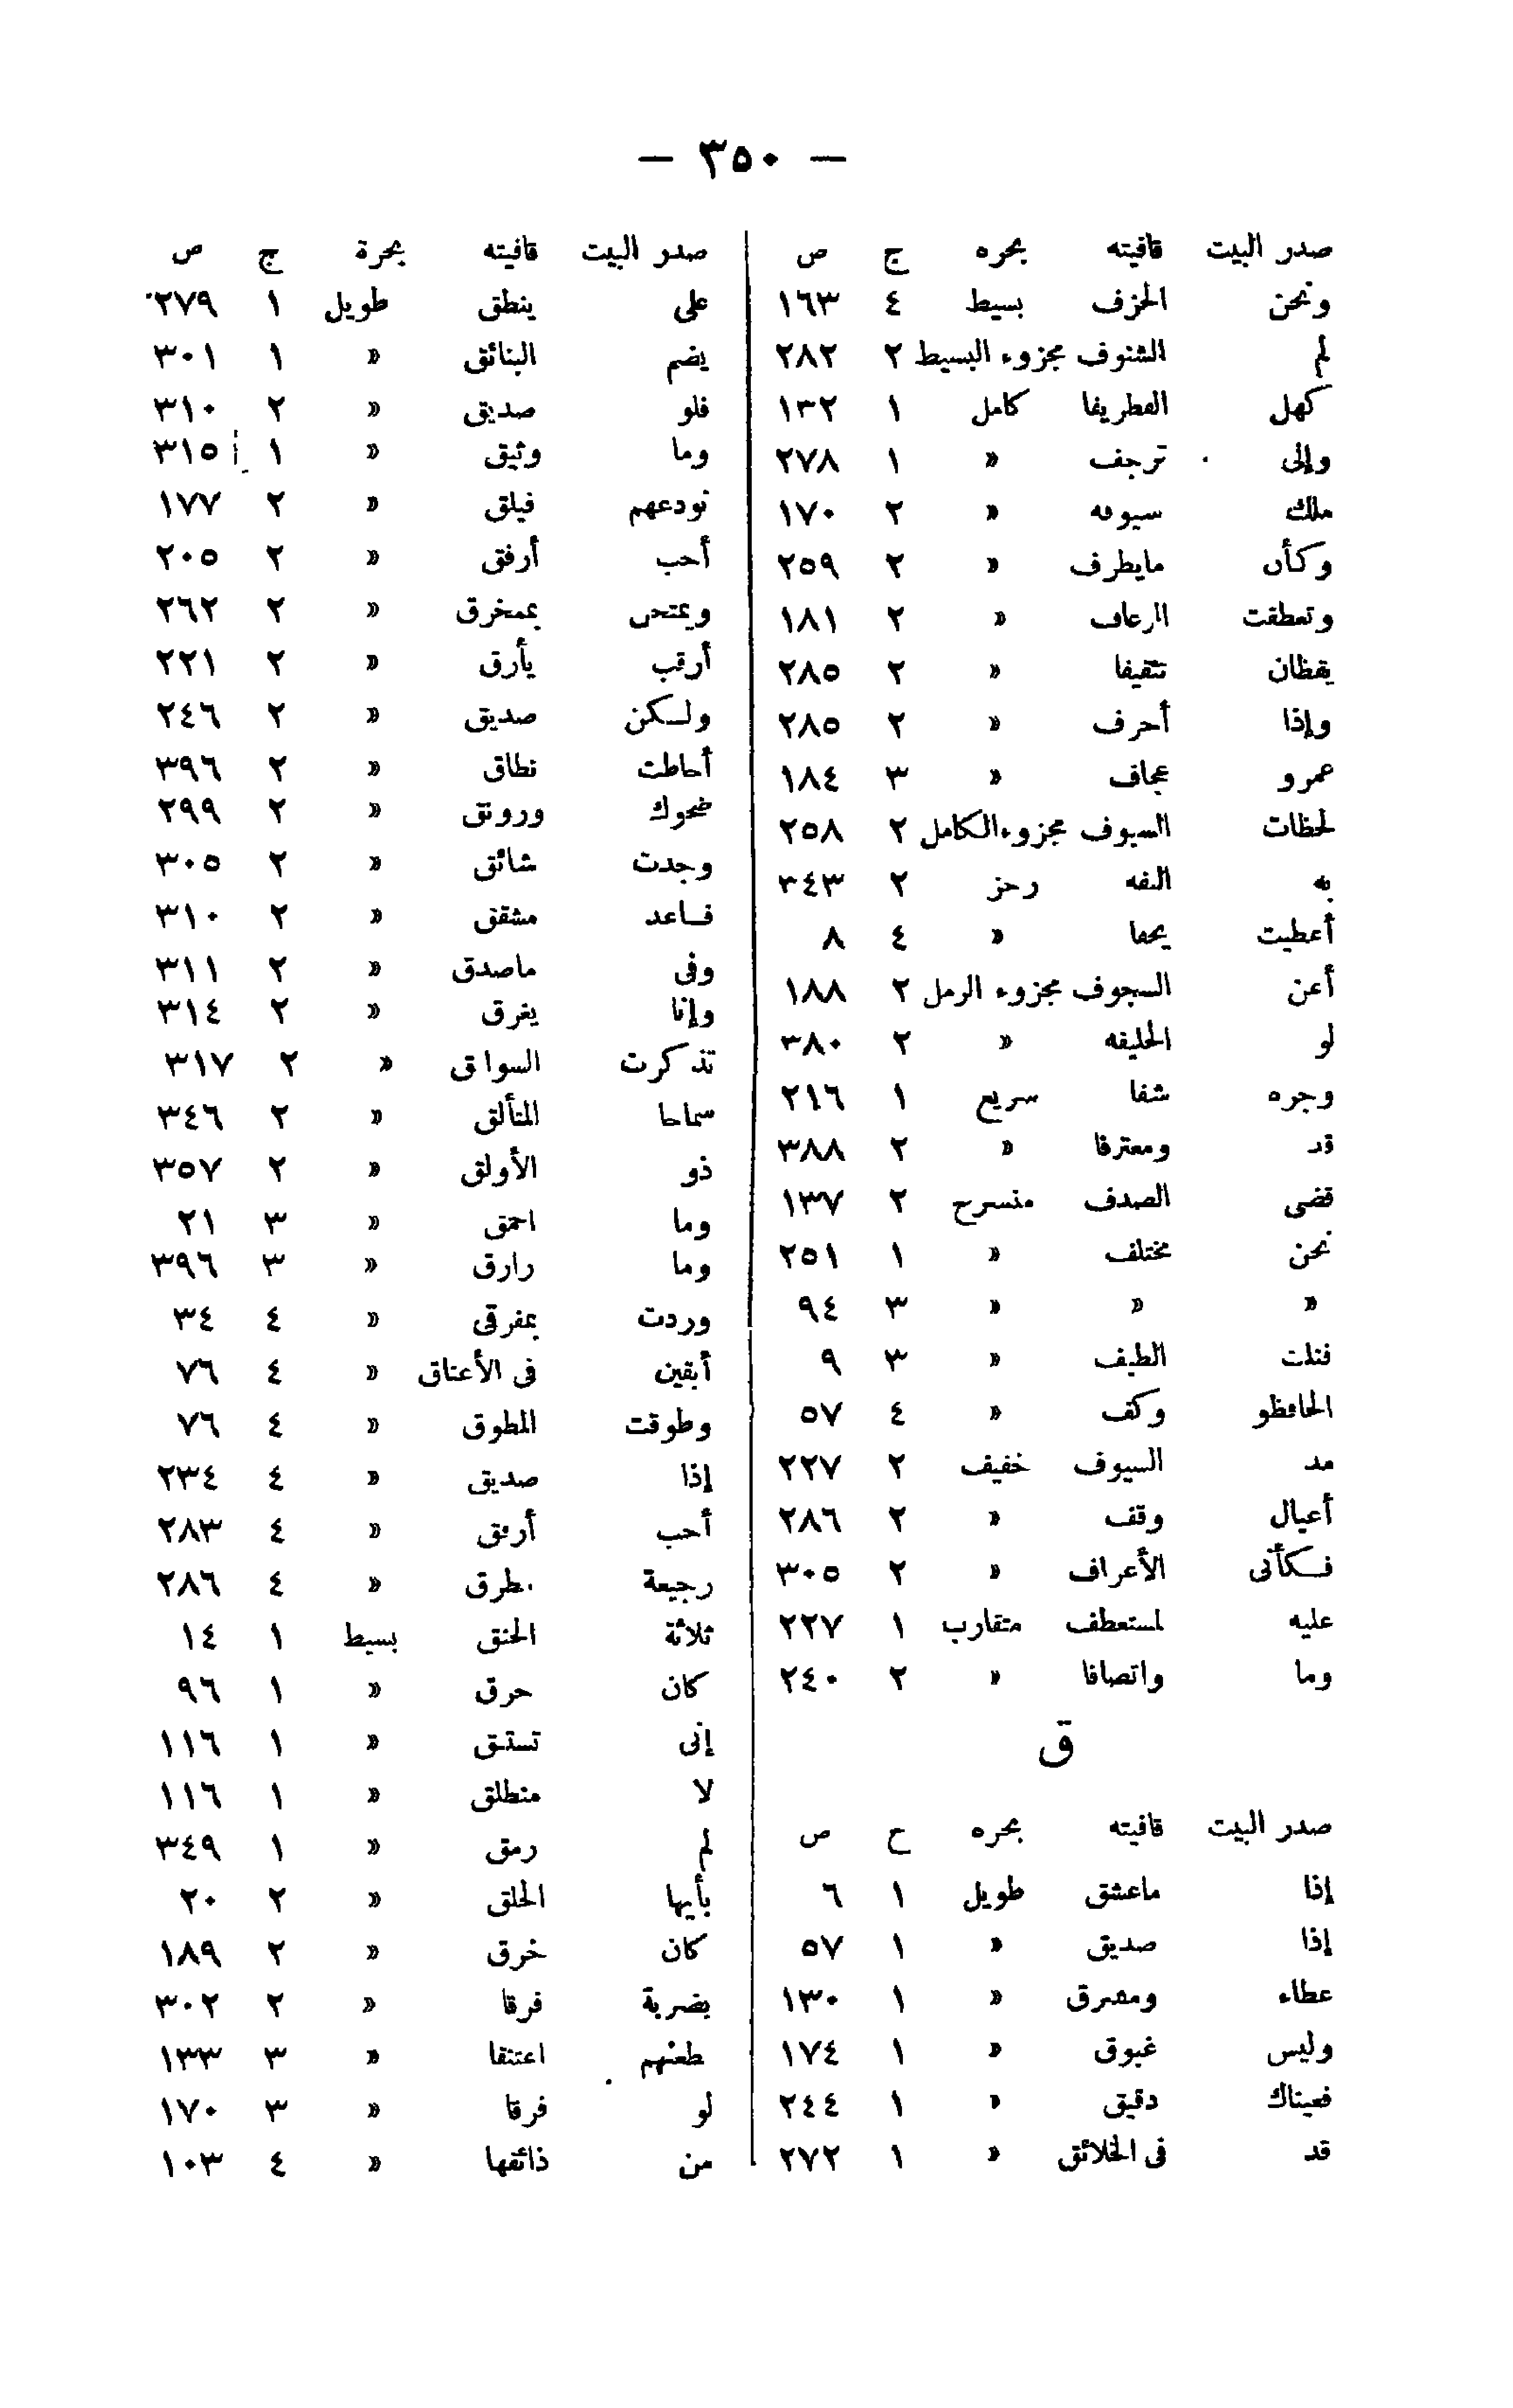 — ٣٥٠ —
صدر البيت قافيته بحره ج ص
ونحن الخزف بسيط ٤ ١٦٣
لم الشنوف مجزوء البسيط ٢ ٢٨٢
كهل الغطريفا كامل ١ ١٣٢
وإلى ترجف » ١ ٢٧٨
ملك سيوفه » ٢ ١٧٠
وكأن مايطرف » ٢ ٢٥٩
وتعطفت الرعاف » ٢ ١٨١
يقظان تثقيفا » ٢ ٢٨٥
وإذا أحرف » ٢ ٢٨٥
عمرو عجاف » ٣ ١٨٤
لحظات السيوف مجزوءالكامل ٢ ٢٥٨
به رجز ٢ ٣٤٣
أعطيت يحفا » ٤ ٨
أعن السجوف مجزوء الرمل ٢ ١٨٨
لو الخليفه » ٢ ٣٨٠
وجره شفا سريع ١ ٢١٦
قد ومعترفا » ٢ ٣٨٨
قضى الصدف منسرح ٢ ١٣٧
نحن مختلف » ١ ٢٥١
» » » ٣ ٩٤
فنلت الطيف » ٣ ٩
الحافظو وكف » ٤ ٥٧
مد السيوف خفيف ٢ ٢٢٧
أعيال وقف » ٢ ٢٨٦
فكأنى الأعراف » ٢ ٣٠٥
عليه لمستعطف متقارب ١ ٢٢٧
وما واتصافا » ٢ ٢٤٠
ق
صدر البيت قافيته بحره ح ص
إذا ماعشق طويل ١ ٦
إذا صديق » ١ ٥٧
عطاء ومغرق » ١ ١٣٠
وليس غبوق » ١ ١٧٤
فعيناك دقيق » ١ ٢٤٤
قد فى الخلائق » ١ ٢٧٢
صدر البيت قافيته بحرة ج ص
على ينطق طويل ١ ٢٧٩
يضم البنائق » ١ ٣٠١
فلو صديق » ٢ ٣١٠
وما وثيق » ١ ٣١٥
نودعهم فيلق » ٢ ١٧٧
أحب أرفق » ٢ ٢٠٥
ويمتحن بممخرق » ٢ ٢٦٢
أرقب يأرق » ٢ ٢٢١
ولكن صديق » ٢ ٢٤٦
أحاطت نطاق » ٢ ٣٩٦
ضحوك ورونق » ٢ ٢٩٩
وجدت شائق » ٢ ٣٠٥
فاعد مشقق » ٢ ٣١٠
وفى ماصدق » ٢ ٣١١
وإنا يغرق » ٢ ٣١٤
تذكرت السواق » ٢ ٣١٧
سماحا المتألق » ٢ ٣٤٦
ذو الأولق » ٢ ٣٥٧
وما احمق » ٣ ٢١
وما رارق » ٣ ٣٩٦
وردت بمفرقى » ٤ ٣٤
أبقين فى الأعناق » ٤ ٧٦
وطوقت المطوق » ٤ ٧٦
إذا صديق » ٤ ٢٣٤
أحب أرفق » ٤ ٢٨٣
رجيعة طرق » ٤ ٢٨٦
ثلاثة الحنق بسيط ١ ١٤
كان حرق » ١ ٩٦
إنى تستبق » ١ ١١٦
لا منطلق » ١ ١١٦
لم رمق » ١ ٣٤٩
يأيها الخلق » ٢ ٢٠
كان خرق » ٢ ١٨٩
بضربة فرقا » ٢ ٣٠٢
طعنهم اعتنقا » ٣ ١٣٣
لو فرقا » ٣ ١٧٠
من ذائقها » ٤ ١٠٣